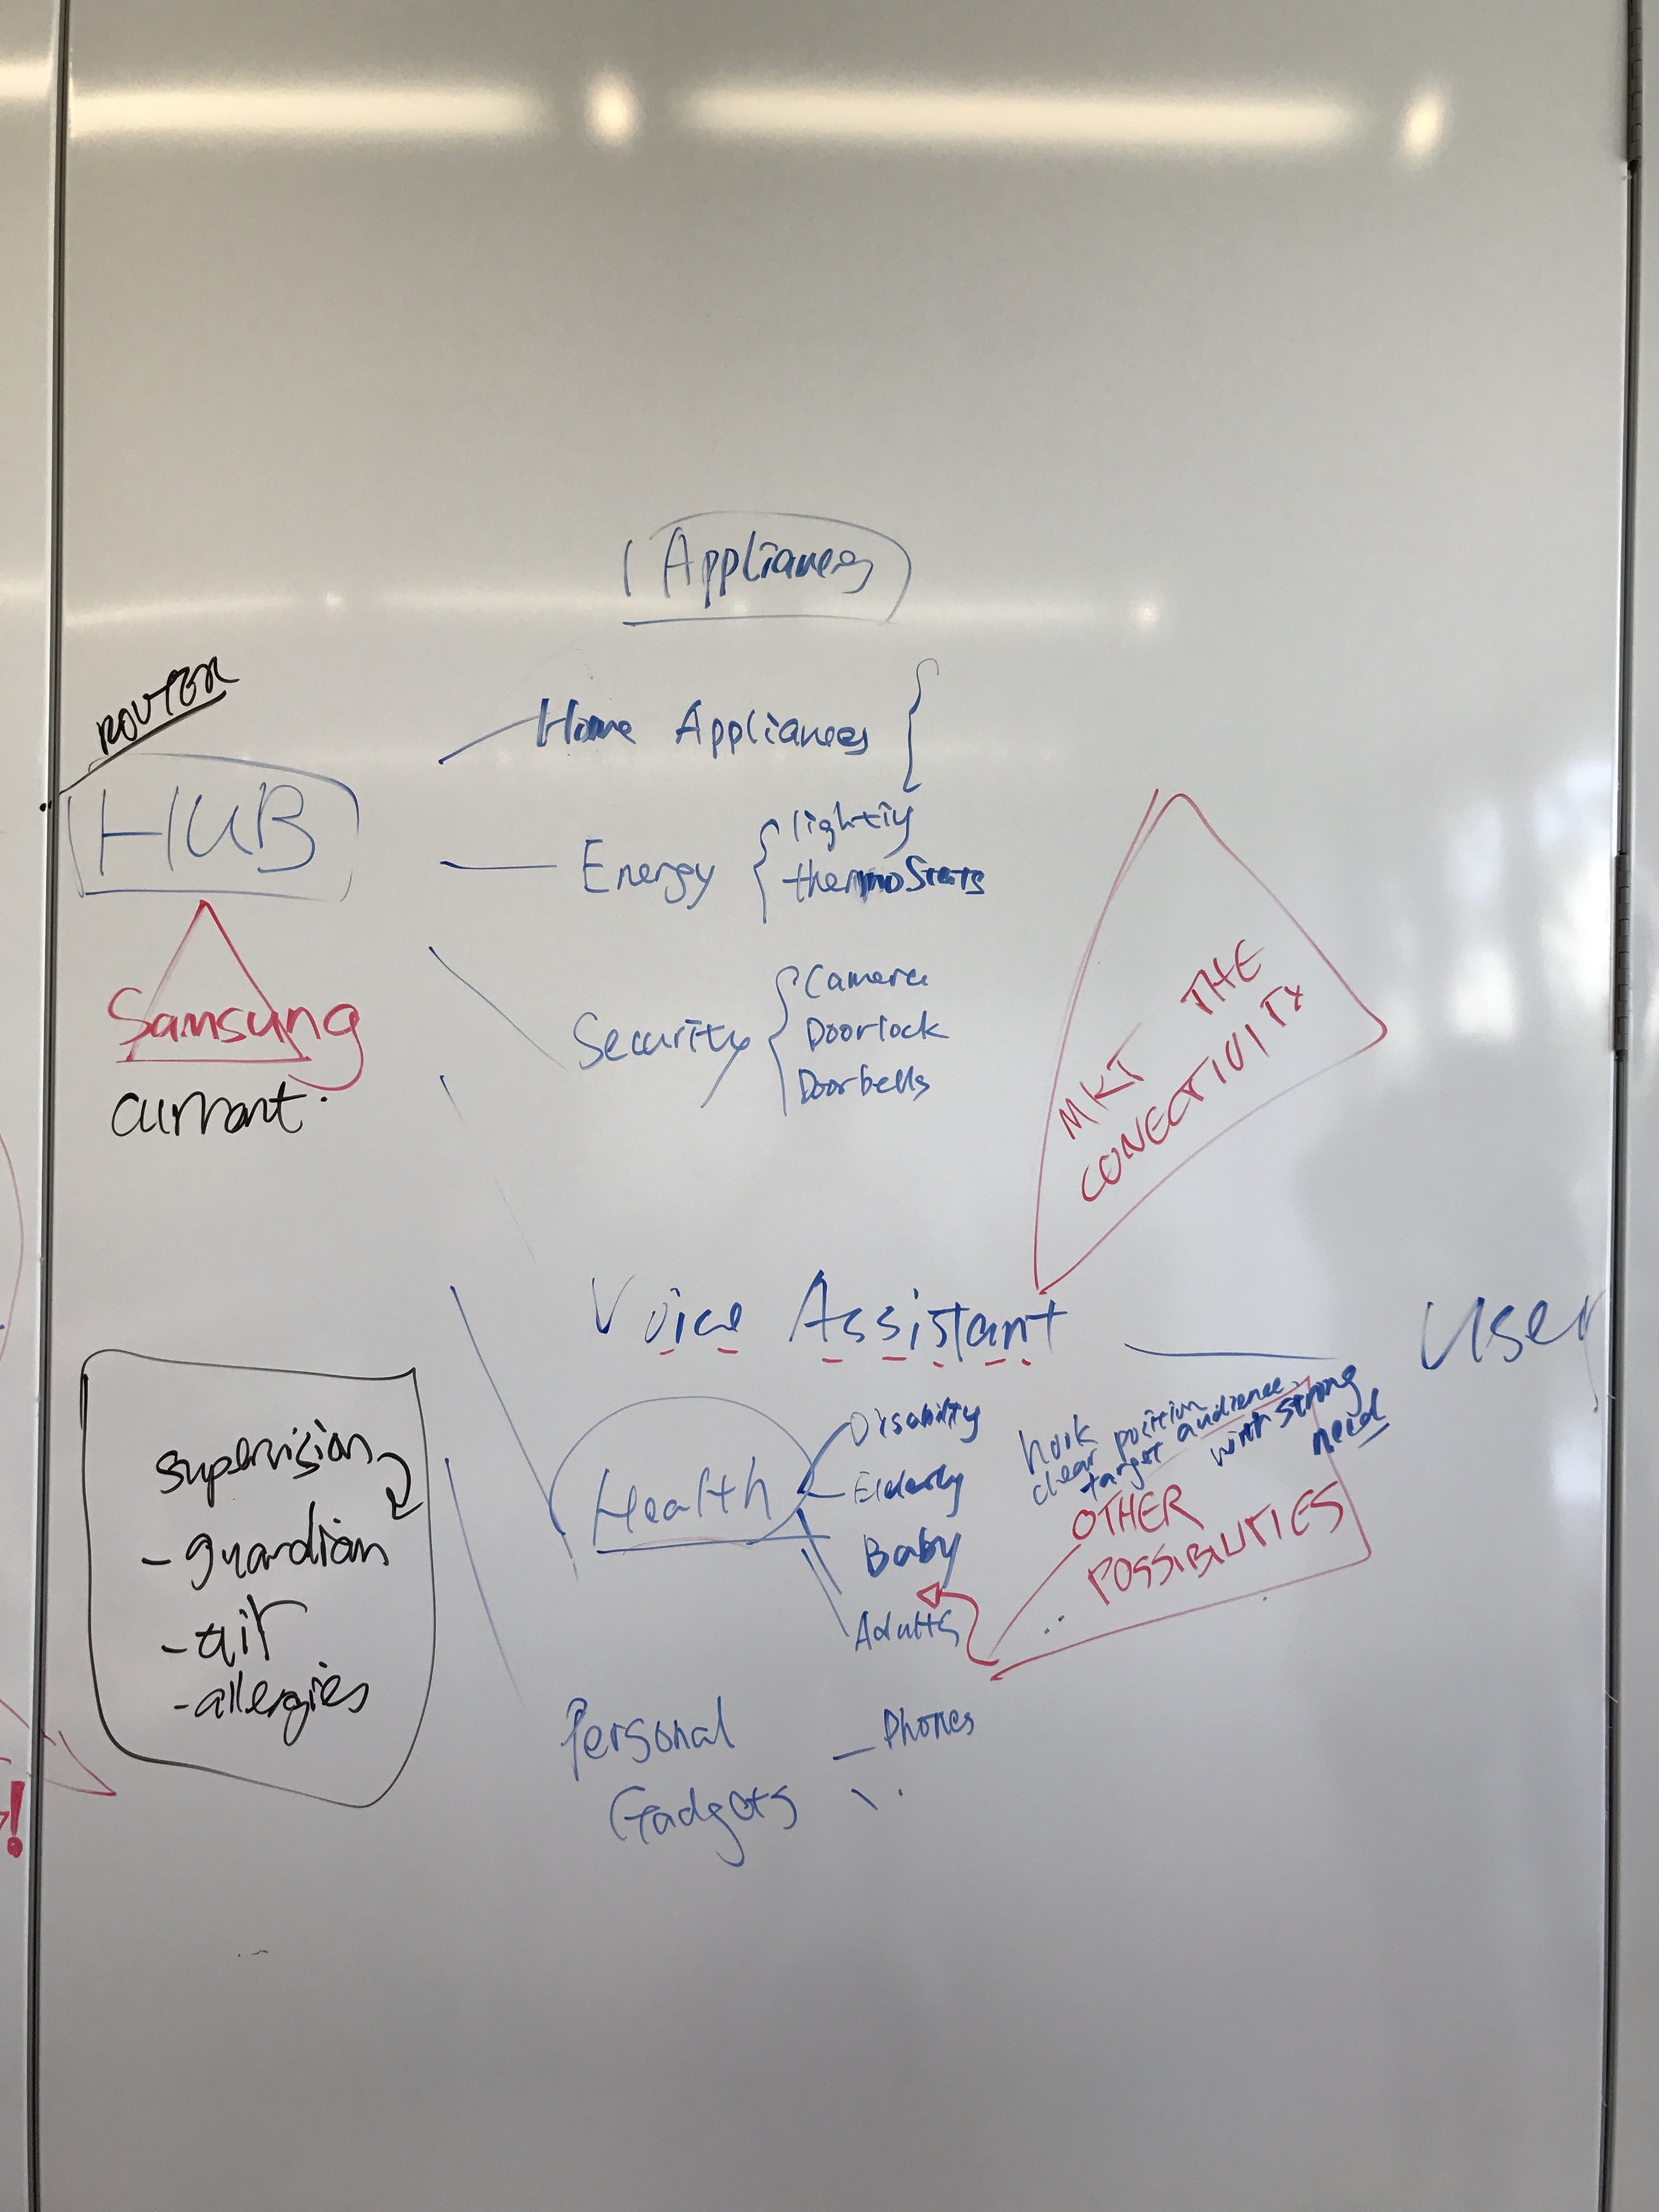 Appliances
ROUTER
HUB
Samsung
current.
Home Appliances
Energy
lightiy
thermostats
Security
Camera
Doorlock
Doorbells
MKT THE
CONECTIVITY
Voice Assistant
User
Health
Disability
Elderly
Baby
Adults
hook
clear position
target audience
with strong
need
OTHER
POSSIBILITIES
Personal
Gadgets
- Phones
supervision
- guardian
- air
- allergies
!